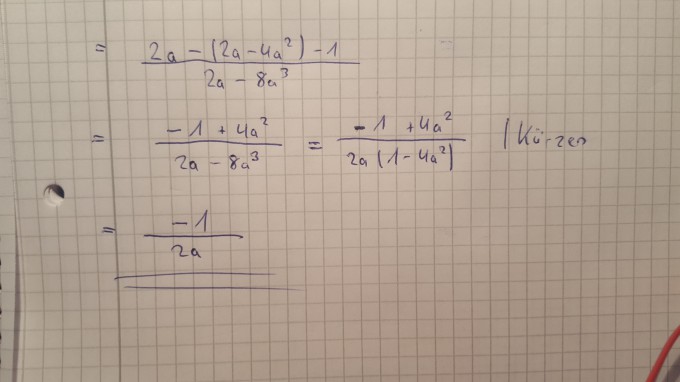 = (2a - (2a - 4a²) - 1) / (2a - 8a³)
= (-1 + 4a²) / (2a - 8a³) = (-1 + 4a²) / (2a (1 - 4a²)) | Kürzen
= -1 / 2a